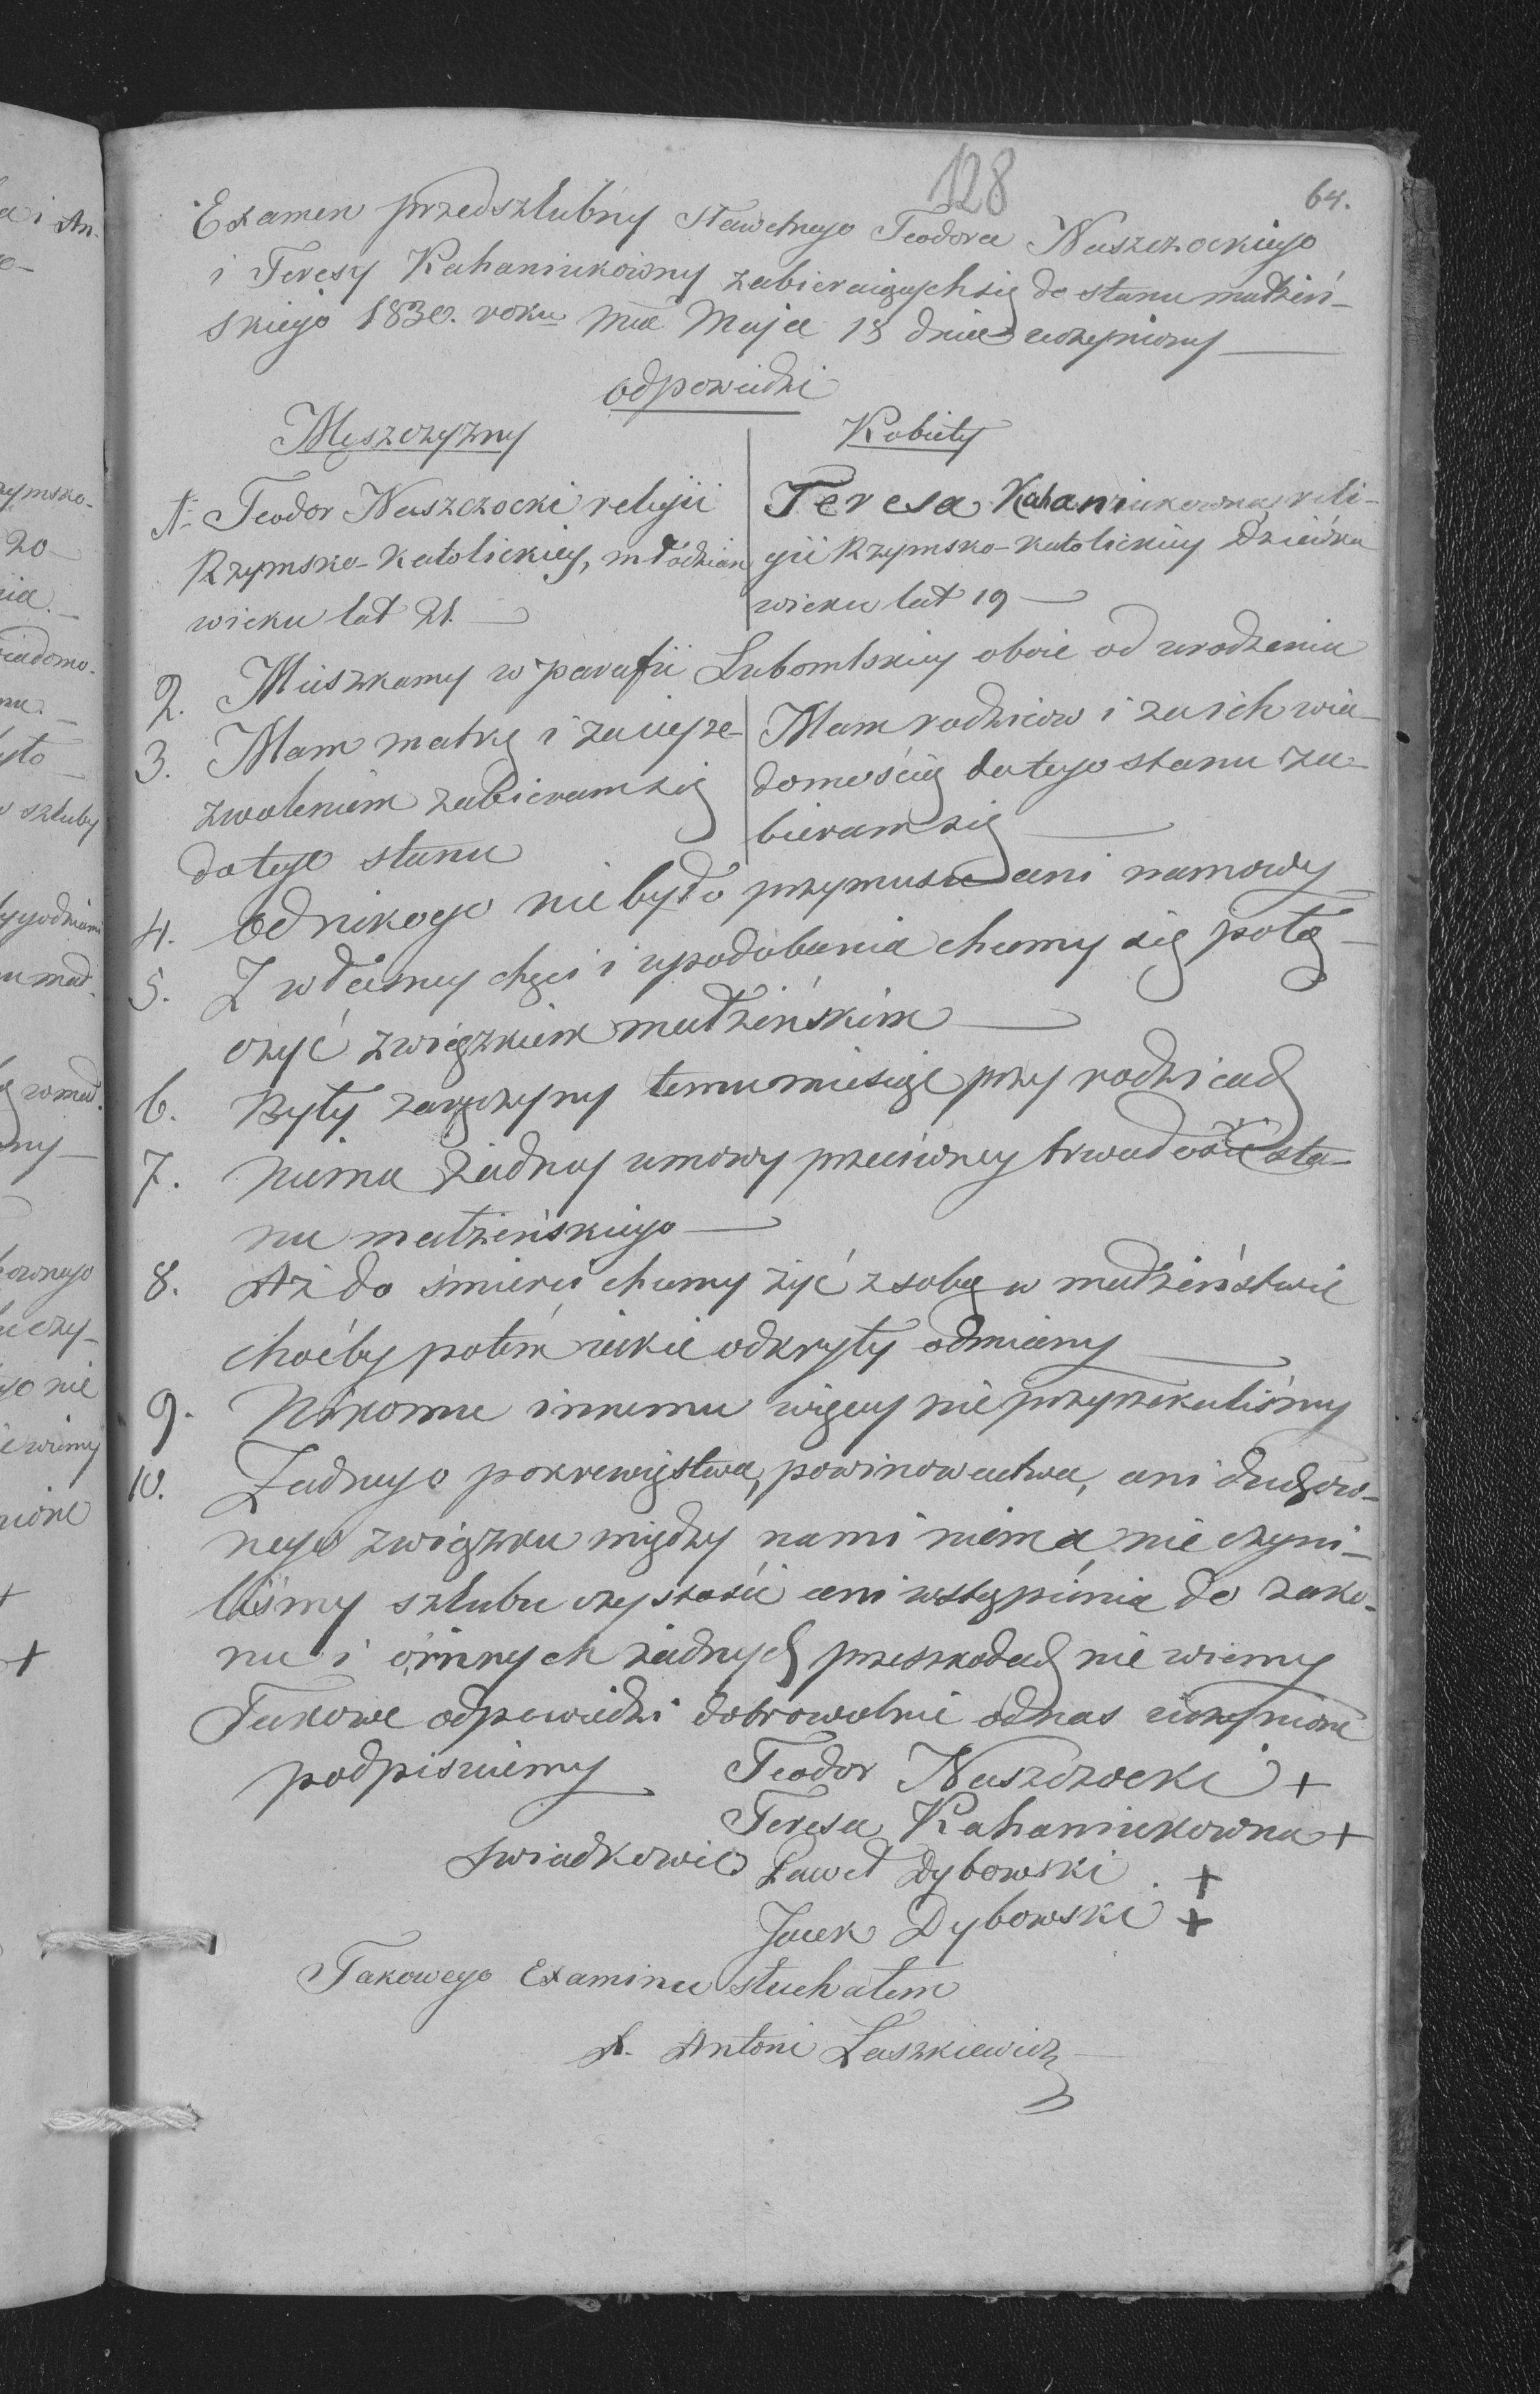 128
64.
Examen przedszlubny Sławetnego Teodora Naszczockiego
i Teresy Kahaniukowny zabieraiących się do stanu małżeń-
skiego 1830. roku mca Maja 18 dnia uczyniony
odpowiedzi
Męszczyzny
Kobiety
1. Teodor Naszczocki religii
Rzymsko-Katolickiey, młodzian
wieku lat 21.
Teresa Kahaniukowna reli-
gii Rzymsko-Katolickiey Dziewka
wieku lat 19
2. Mieszkamy w parafii Lubomlskiey oboie od urodzenia
3. Mam matkę i za iey ze-
zwoleniem zabieram się
do tego stanu
Mam rodziców i za ich wia-
domością do tego stanu za-
bieram się
4. Od nikogo nie było przymusu ani namowy
5. Z własney chęci i upodobania chcemy się połą-
czyć związkiem małżeńskim
6. Były zaręczyny temu miesiąc przy rodzicach
7. Niema żadney umowy przeciwney trwałości sta-
nu małżeńskiego
8. Aż do śmierci chcemy żyć z sobą w małżeństwie
choćby potém iakie odkryły odmiany
9. Nikomu innemu więcey nie przyrzekaliśmy
10. Żadnego pokrewięstwa, powinowactwa, ani duchow-
nego związku między nami niema, nie czyni-
liśmy szlubu czystości ani wstąpienia do zako-
nu i o innych żadnych przeszkodach nie wiemy
Takowe odpowiedzi dobrowolnie od nas uczynione
podpisuiemy
Teodor Naszczocki +
Teresa Kahaniukowna +
Swiadkowie Paweł Dybowski +
Jacek Dybowski +
Takowego Examinu słuchałem
X. Antoni Laszkiewicz